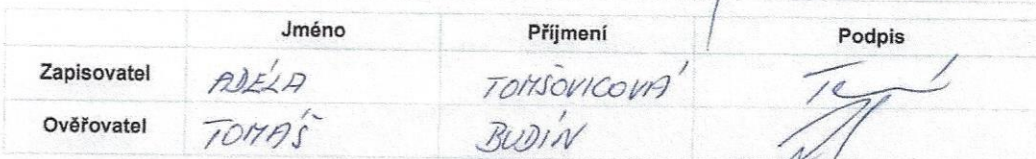 Jméno Příjmení Podpis
Zapisovatel ADÉLA TOMŠOVICOVÁ
Ověřovatel TOMÁŠ BUDÍN